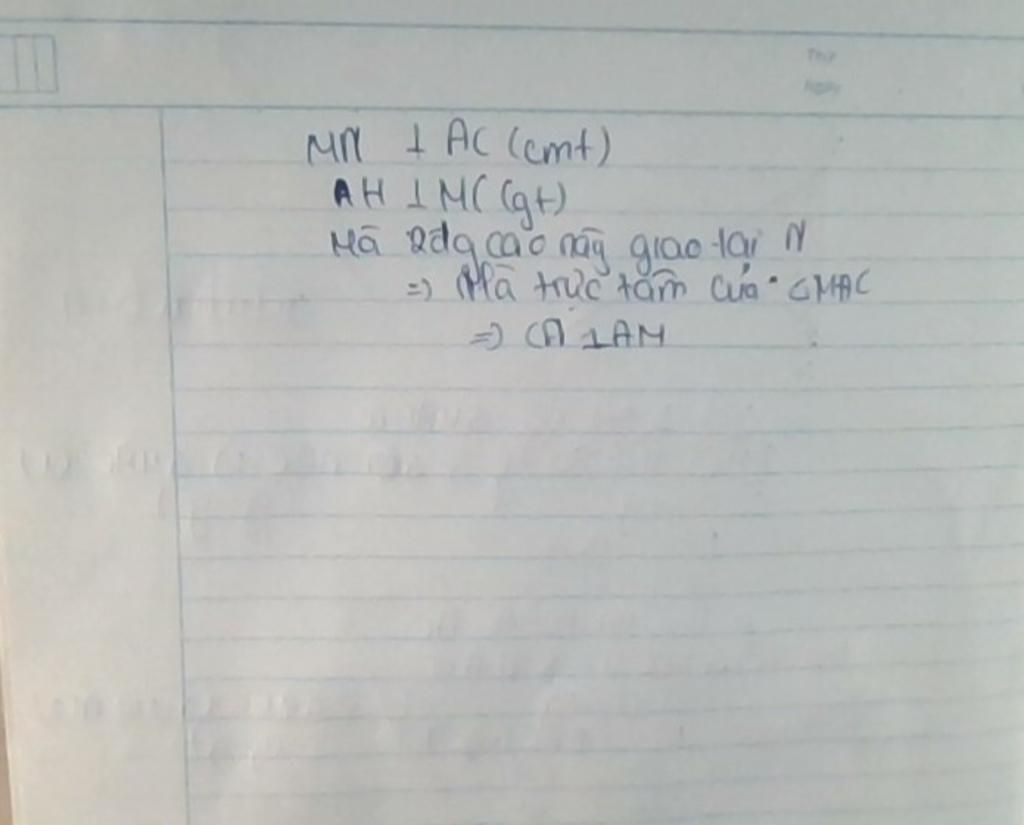 Thứ
Ngày
MN ⊥ AC (cmt)
AH ⊥ MC (gt)
Mà 2 đg cao này giao tại N
=> N là trực tâm của △MAC
=> CN ⊥ AM